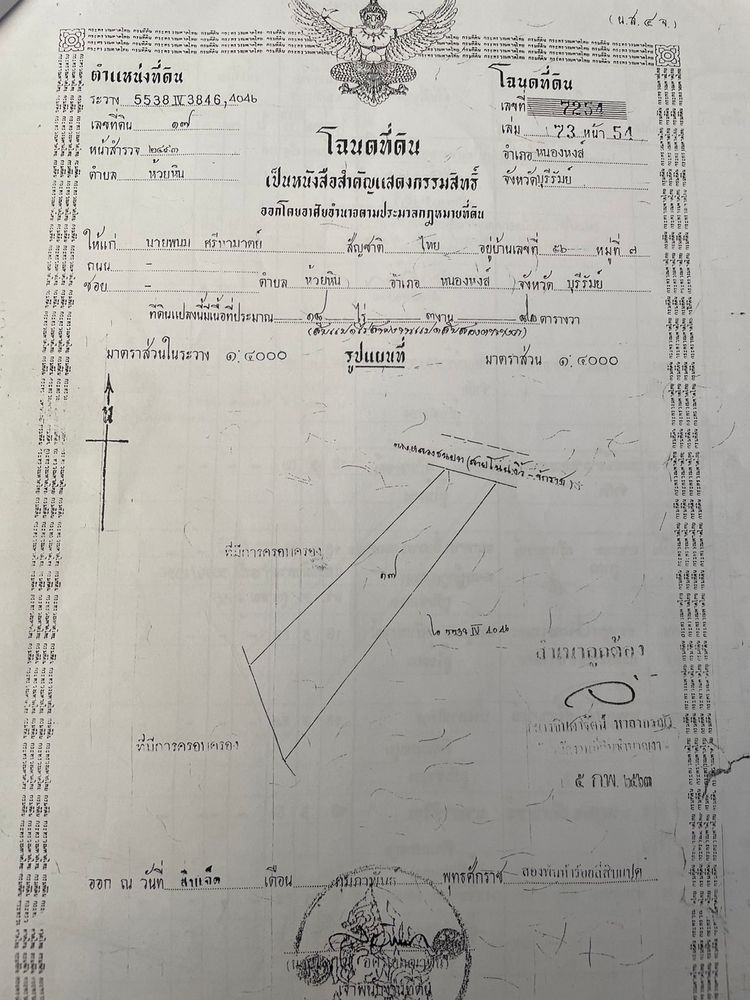 (น.ส.๔ จ.)
ตำแหน่งที่ดิน
ระวาง 5538 IV 3846,4046
เลขที่ดิน ๑๗
หน้าสำรวจ ๒๔๙๓
ตำบล ห้วยหิน
โฉนดที่ดิน
เลขที่ 7254
เล่ม 73 หน้า 54
อำเภอ หนองหงส์
จังหวัด บุรีรัมย์
โฉนดที่ดิน
เป็นหนังสือสำคัญแสดงกรรมสิทธิ์
ออกโดยอาศัยอำนาจตามประมวลกฎหมายที่ดิน
ให้แก่ นายพนม ศรีหามาตย์ สัญชาติ ไทย อยู่บ้านเลขที่ ๕๖ หมู่ที่ ๗
ถนน -
ซอย - ตำบล ห้วยหิน อำเภอ หนองหงส์ จังหวัด บุรีรัมย์
ที่ดินแปลงนี้มีเนื้อที่ประมาณ ๑๘ ไร่ ๓ งาน ๘๒ ตารางวา
(สิบแปดไร่สามงานแปดสิบสองตารางวา)
มาตราส่วนในระวาง ๑:๔๐๐๐ รูปแผนที่ มาตราส่วน ๑:๔๐๐๐
น
ทางหลวงชนบท
ที่มีการครอบครอง
๑๗
IV 4046
สำเนาถูกต้อง
ที่มีการครอบครอง
๕ ก.พ. ๒๕๖๓
ออก ณ วันที่ สิบเจ็ด เดือน กุมภาพันธ์ พุทธศักราช สองพันห้าร้อยสี่สิบแปด
เจ้าพนักงานที่ดิน